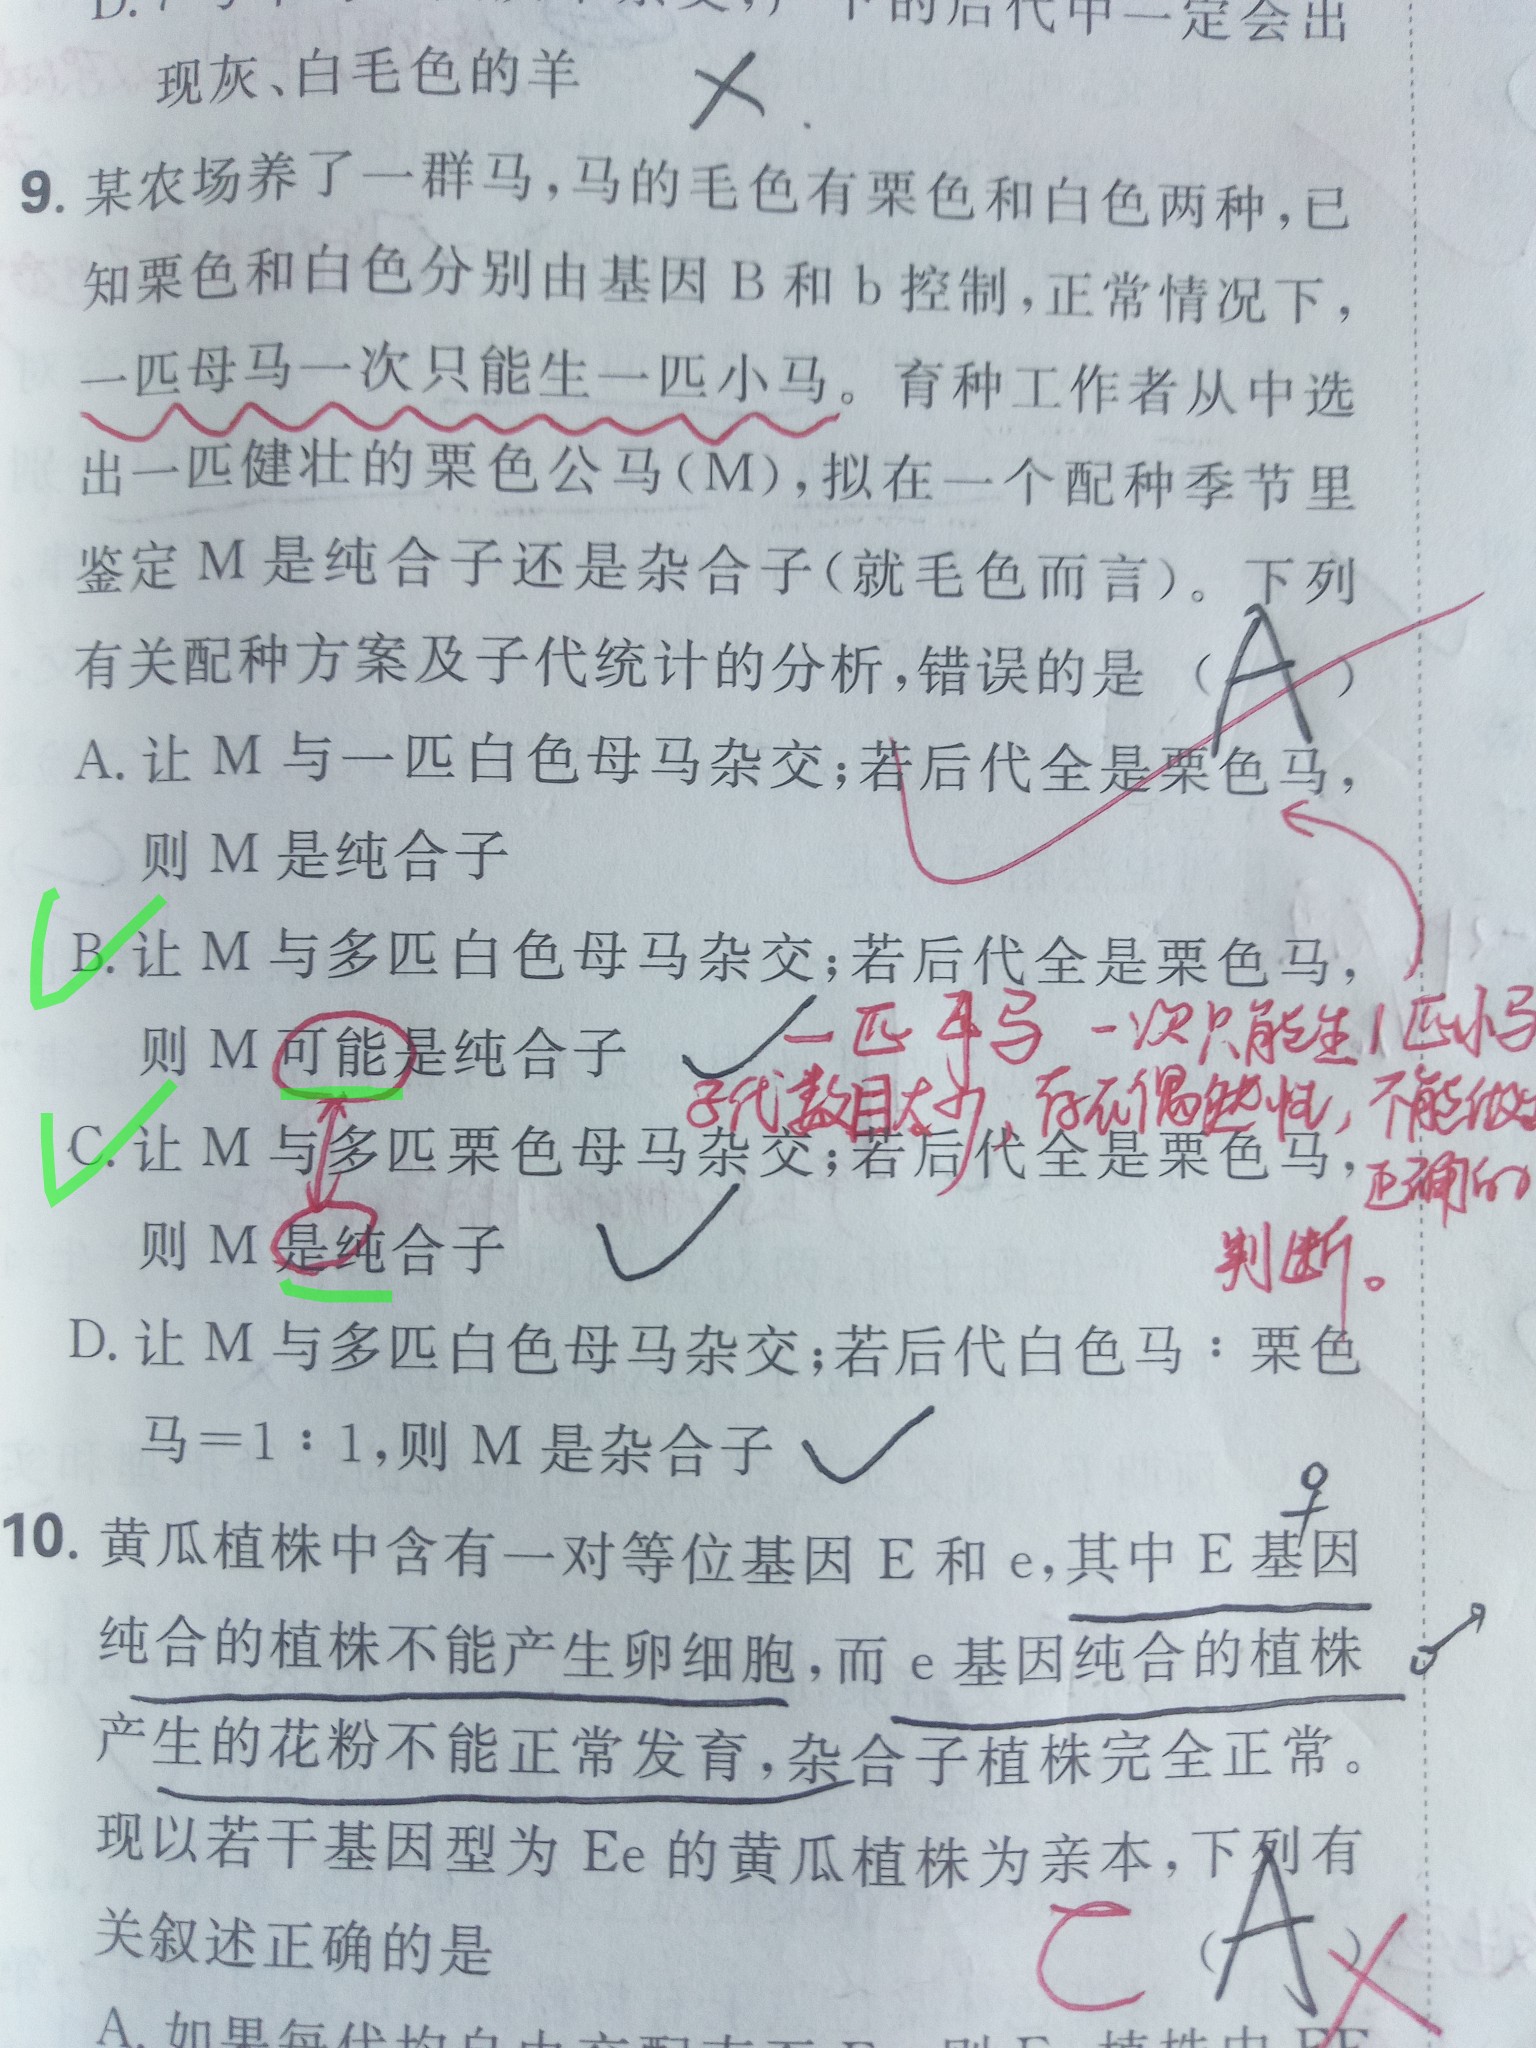 D.
的后代中一定会出
现灰、白毛色的羊
9. 某农场养了一群马,马的毛色有栗色和白色两种,已
知栗色和白色分别由基因 B 和 b 控制,正常情况下,
一匹母马一次只能生一匹小马。育种工作者从中选
出一匹健壮的栗色公马(M),拟在一个配种季节里
鉴定 M 是纯合子还是杂合子(就毛色而言)。下列
有关配种方案及子代统计的分析,错误的是 ( A )
A. 让 M 与一匹白色母马杂交;若后代全是栗色马,
则 M 是纯合子
B. 让 M 与多匹白色母马杂交;若后代全是栗色马,
则 M 可能是纯合子
一匹母马一次只能生1匹小马
子代数目太少,存在偶然性,不能做出
C. 让 M 与多匹栗色母马杂交;若后代全是栗色马,
正确的
则 M 是纯合子
判断。
D. 让 M 与多匹白色母马杂交;若后代白色马∶栗色
马=1∶1,则 M 是杂合子
♀
10. 黄瓜植株中含有一对等位基因 E 和 e,其中 E 基因
纯合的植株不能产生卵细胞,而 e 基因纯合的植株
♂
产生的花粉不能正常发育,杂合子植株完全正常。
现以若干基因型为 Ee 的黄瓜植株为亲本,下列有
关叙述正确的是 C ( A )
A. 如果每代均自由交配直至
植株中 EE